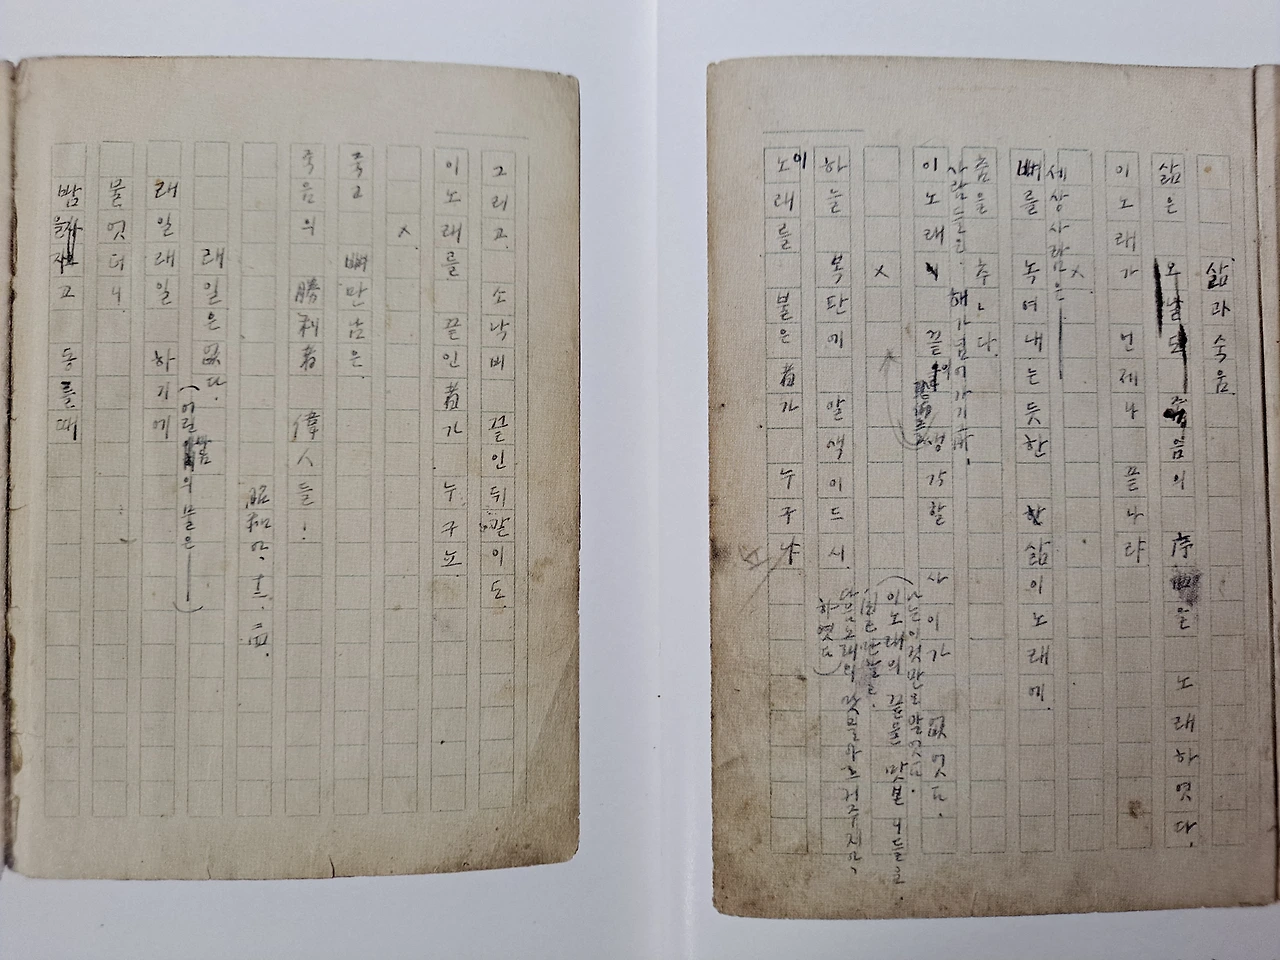 삶과 죽음.
삶은 오날도 죽음의 序曲을 노래하엿다.
이 노래가 언제나 끝나랴.
×
세상사람은 —
뼈를 녹여내는듯한 삶이노래에.
춤을 추ㄴ다.
사람들은 해가넘어가기
이노래 끝의 생각할 사이가 없엇다.
(나는 이것만은 알엇다.
이노래의 끝을 맛본 니들은
×
하늘 복단에 알색이드시.
하엿다)
이 노래를 불은者가 누구냐
그리고. 소낙비 끝인뒤같이도.
이노래를 끝인者가 누구뇨.
×
죽고 뼈만남은.
죽음의 勝利者 偉人들!
昭和
래일은 없다.
(어린 마음의 물은 ——)
래일래일 하기에
물엇더니.
밤을자고 동틀때